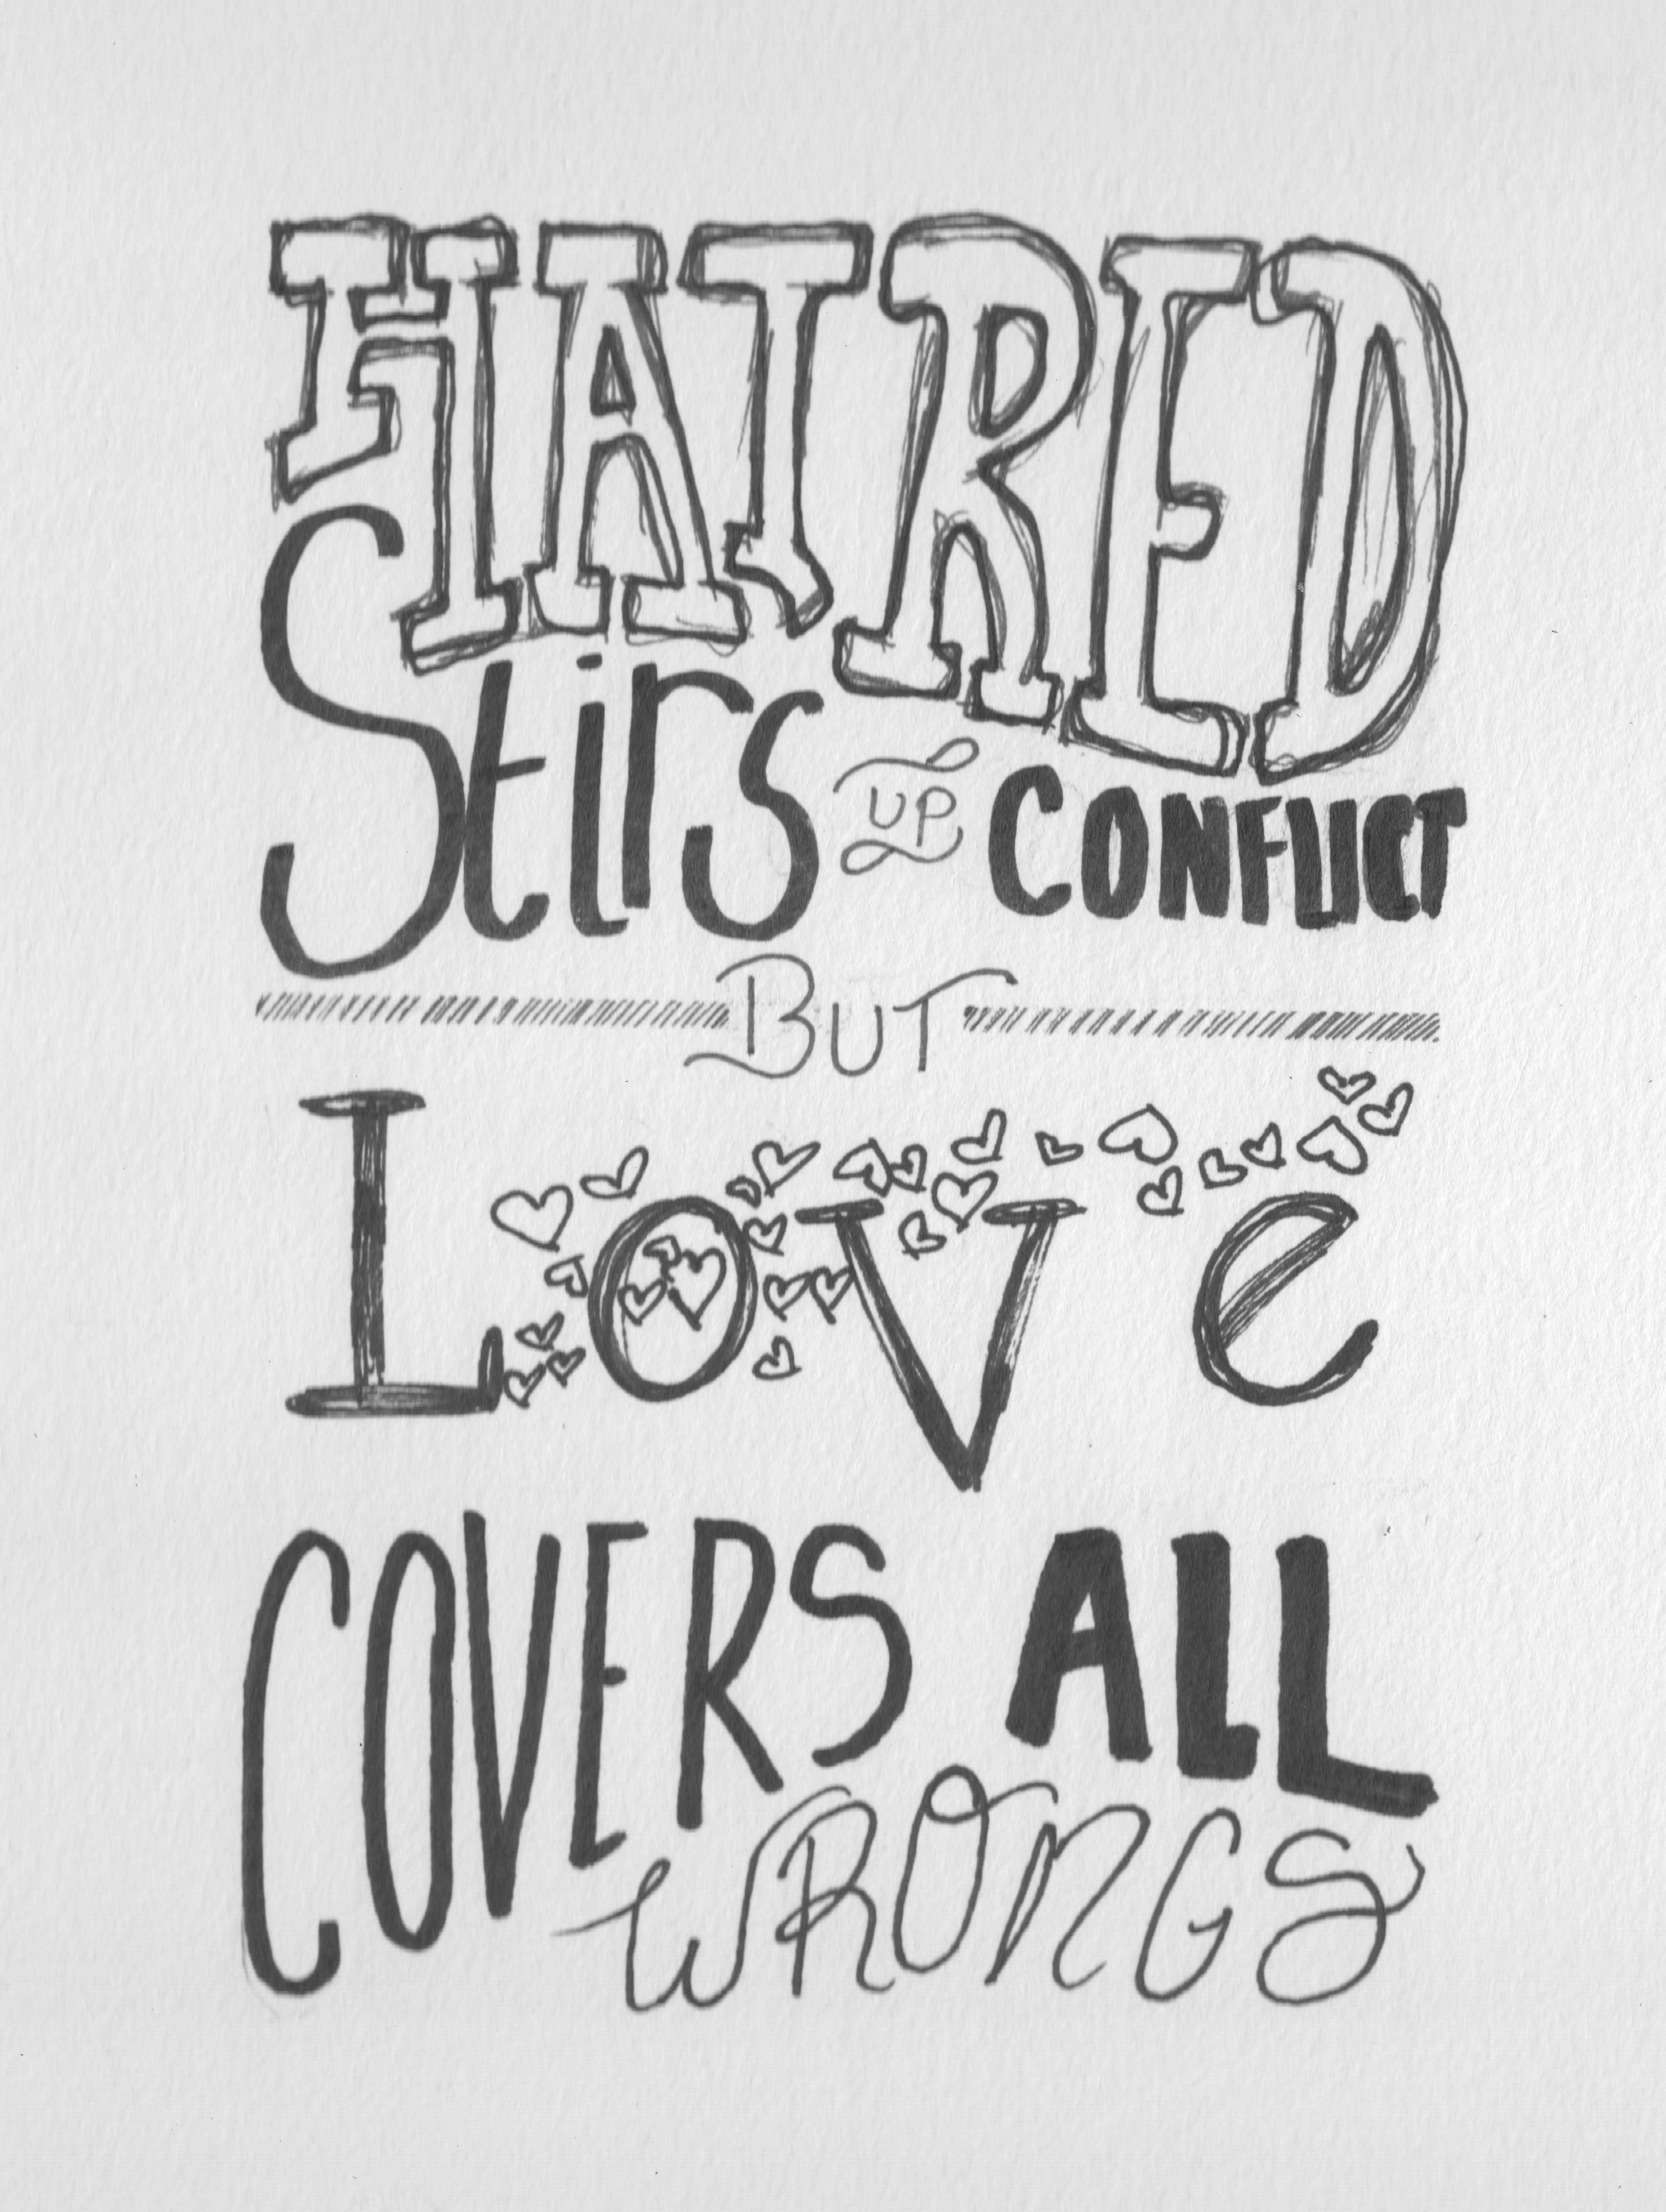 HATRED
Stirs UP CONFLICT
BUT
LoVe
COVERS ALL
WRONGS